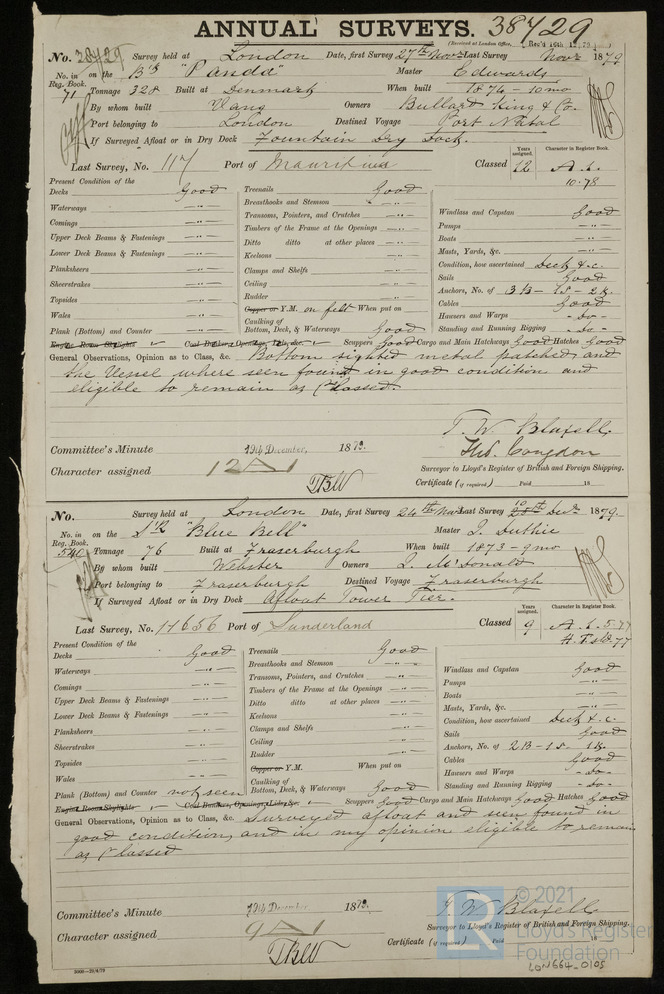 ANNUAL SURVEYS. 38729
(Received at London Office, Rec'd 19th 12 79)
No. 38729 Survey held at London Date, first Survey 27th Novr Last Survey Novr 1879
No. in Reg. Book. 71 on the Bk "Panda" Master Edwards
Tonnage 328 Built at Denmark When built 1874 - 10mo
By whom built Vlang Owners Bullard King & Co.
Port belonging to London Destined Voyage Port Natal
If Surveyed Afloat or in Dry Dock Fountain Dry Dock.
Last Survey, No. 117 Port of Mauritius Classed Years assigned. 12 Character in Register Book. A.1. 10.78
Present Condition of the
Decks Good
Waterways — " —
Comings — " —
Upper Deck Beams & Fastenings — " —
Lower Deck Beams & Fastenings — " —
Planksheers — " —
Sheerstrakes — " —
Topsides — " —
Wales — " —
Plank (Bottom) and Counter — " —
Treenails Good
Breasthooks and Stemson — " —
Transoms, Pointers, and Crutches — " —
Timbers of the Frame at the Openings — " —
Ditto ditto at other places — " —
Keelsons — " —
Clamps and Shelfs — " —
Ceiling — " —
Rudder — " —
Copper or Y.M. on felt When put on
Caulking of Bottom, Deck, & Waterways Good
Windlass and Capstan Good
Pumps — " —
Boats — " —
Masts, Yards, &c. — " —
Condition, how ascertained Deck & c.
Sails Good
Anchors, No. of 3B - 1S - 2K.
Cables Good
Hawsers and Warps - do -
Standing and Running Rigging - do -
Engine Room Skylights Coal Bunkers Openings, Lids, &c. Scuppers Good Cargo and Main Hatchways Good Hatches Good
General Observations, Opinion as to Class, &c. Bottom sighted metal patched and
the Vessel where seen found in good condition and
eligible to remain as Classed.
T. W. Blaxell
Thos. Congdon
Surveyor to Lloyd's Register of British and Foreign Shipping.
Committee's Minute 19th December, 1879.
Character assigned 12 A 1
TBW
Certificate (if required) Paid 18
No. Survey held at London Date, first Survey 24th Novr Last Survey 10 Decr 1879.
No. in Reg. Book. 540 on the Sr "Blue Bell" Master J. Duthie
Tonnage 76 Built at Fraserburgh When built 1873 - 9mo
By whom built Webster Owners J. McDonald
Port belonging to Fraserburgh Destined Voyage Fraserburgh
If Surveyed Afloat or in Dry Dock Afloat Tower Tier.
Last Survey, No. 17656 Port of Sunderland Classed Years assigned. 9 Character in Register Book. A.1. 5.77
Present Condition of the
Decks Good
Waterways — " —
Comings — " —
Upper Deck Beams & Fastenings — " —
Lower Deck Beams & Fastenings — " —
Planksheers — " —
Sheerstrakes — " —
Topsides — " —
Wales — " —
Plank (Bottom) and Counter not seen
Treenails Good
Breasthooks and Stemson — " —
Transoms, Pointers, and Crutches — " —
Timbers of the Frame at the Openings — " —
Ditto ditto at other places — " —
Keelsons — " —
Clamps and Shelfs — " —
Ceiling — " —
Rudder — " —
Copper or Y.M. When put on
Caulking of Bottom, Deck, & Waterways Good
Windlass and Capstan Good
Pumps — " —
Boats — " —
Masts, Yards, &c. — " —
Condition, how ascertained Deck & c.
Sails Good
Anchors, No. of 2B - 1S. 1K.
Cables Good
Hawsers and Warps - do -
Standing and Running Rigging - do -
Engine Room Skylights Coal Bunkers, Openings, Lids, &c. Scuppers Good Cargo and Main Hatchways Good Hatches Good
General Observations, Opinion as to Class, &c. Surveyed afloat and seen found in
good condition, and in my opinion eligible to remain
as Classed
Committee's Minute 19th December 1879.
T. W. Blaxell
Surveyor to Lloyd's Register of British and Foreign Shipping.
Character assigned 9 A 1
TBW
Certificate (if required) Paid 18
© 2021
Lloyd's Register
Foundation
LON664-0105